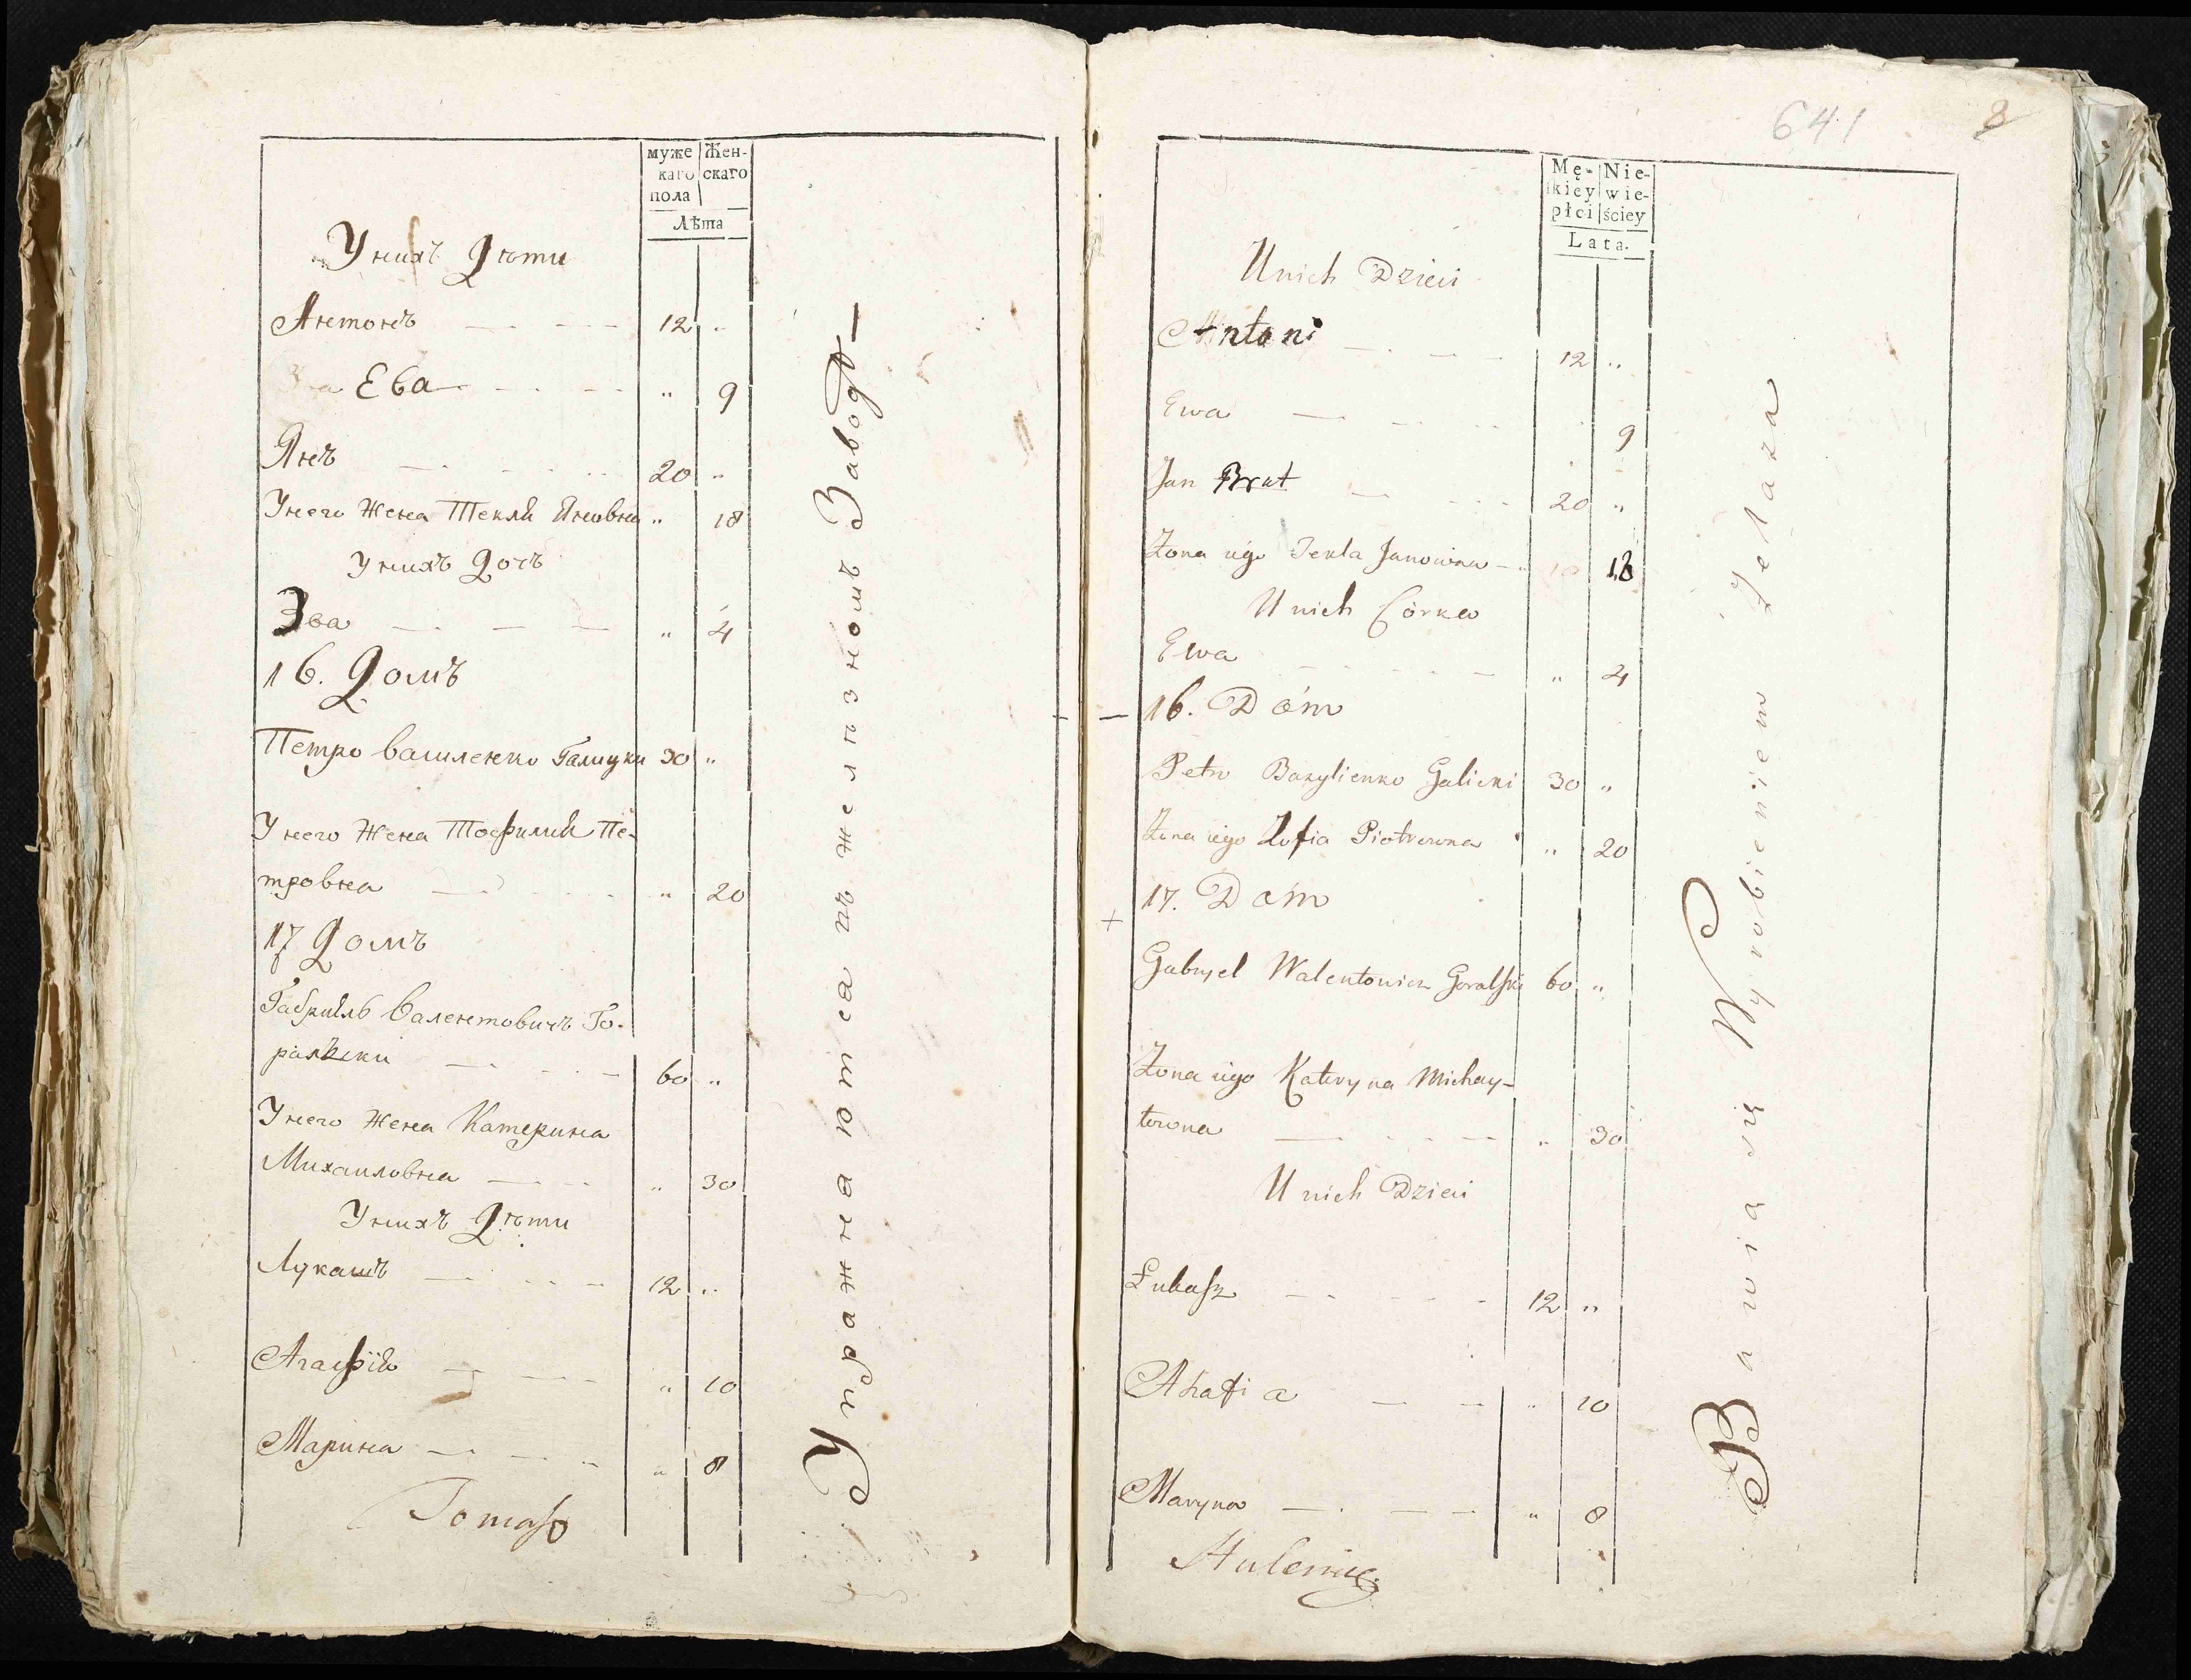 муже Жен-
каго скаго
пола
Лѣта
У нихъ Дѣти
Антонъ — — — 12 „
Ева — — — „ 9
Янъ — — — 20 „
У него Жена Текля Яновна „ 18
У нихъ Дочь
Эва — — — „ 4
16. Домъ
Петро Василенко Галицки 30 „
У него Жена Тоофилия Пе-
тровна — — „ 20
17 Домъ
Габриель Валентовичъ Го-
ральски — — 60 „
У него Жена Катерина
Михаиловна — — „ 30
У нихъ Дѣти
Лукашъ — — — 12 „
Агафія — — — „ 10
Марина — — — „ 8
Tomasz
Упражнаютса въ желѣзномъ Заводѣ —
641
Mę- Nie-
kiey wie-
płci ściey
Lata.
U nich Dzieci
Antoni — — — 12 „
Ewa — — — 9
Jan Brat — — — 20 „
Żona iego Tekla Janowna — 18
U nich Córka
Ewa — — — „ 4
— 16. Dóm
Petro Bazylienko Galicki 30 „
Żona iego Zofia Piotrowna „ 20
17. Dóm
+
Gabryel Walentowicz Goralski 60 „
Żona iego Kateryna Michay-
łowna — — — „ 30
U nich Dzieci
Łukasz — — — 12 „
Ahafia — — — „ 10
Maryna — — — „ 8
Bawią się Wyrobieniem Żelaza